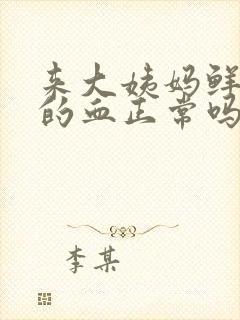 来大姨妈鲜
的血正常吗
李某